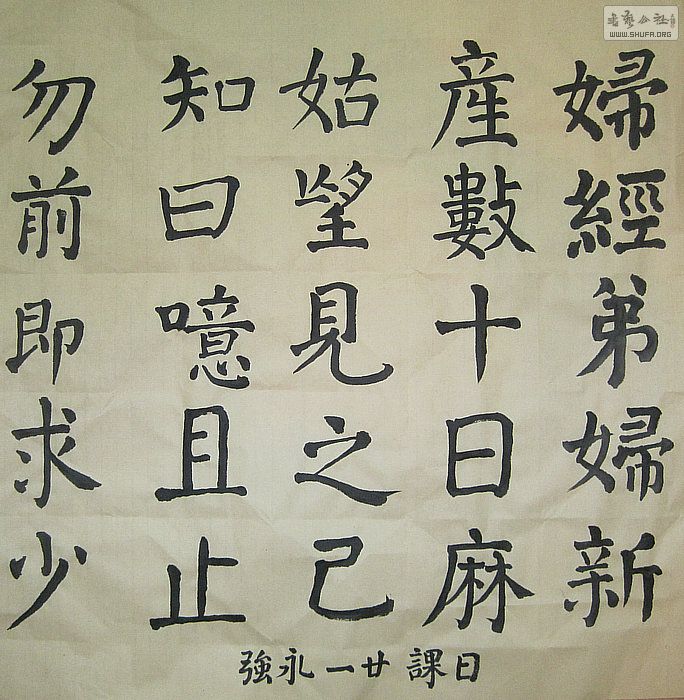 婦經弟婦新
産數十日麻
姑望見之已
知曰噫且止
勿前即求少
日課廿一永強
书艺公社
WWW.SHUFA.ORG